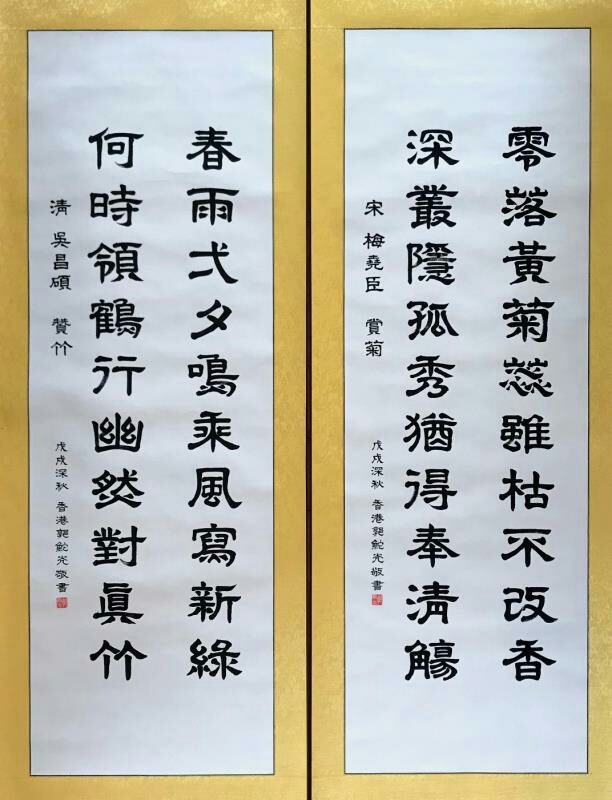 零落黃菊蕊雖枯不改香
深叢隱孤秀猶得奉清觴
宋 梅堯臣 賞菊
戊戌深秋 香港郭鮀光敬書
春雨弌夕鳴乘風寫新綠
何時領鶴行幽然對眞竹
清 吳昌碩 贊竹
戊戌深秋 香港郭鮀光敬書